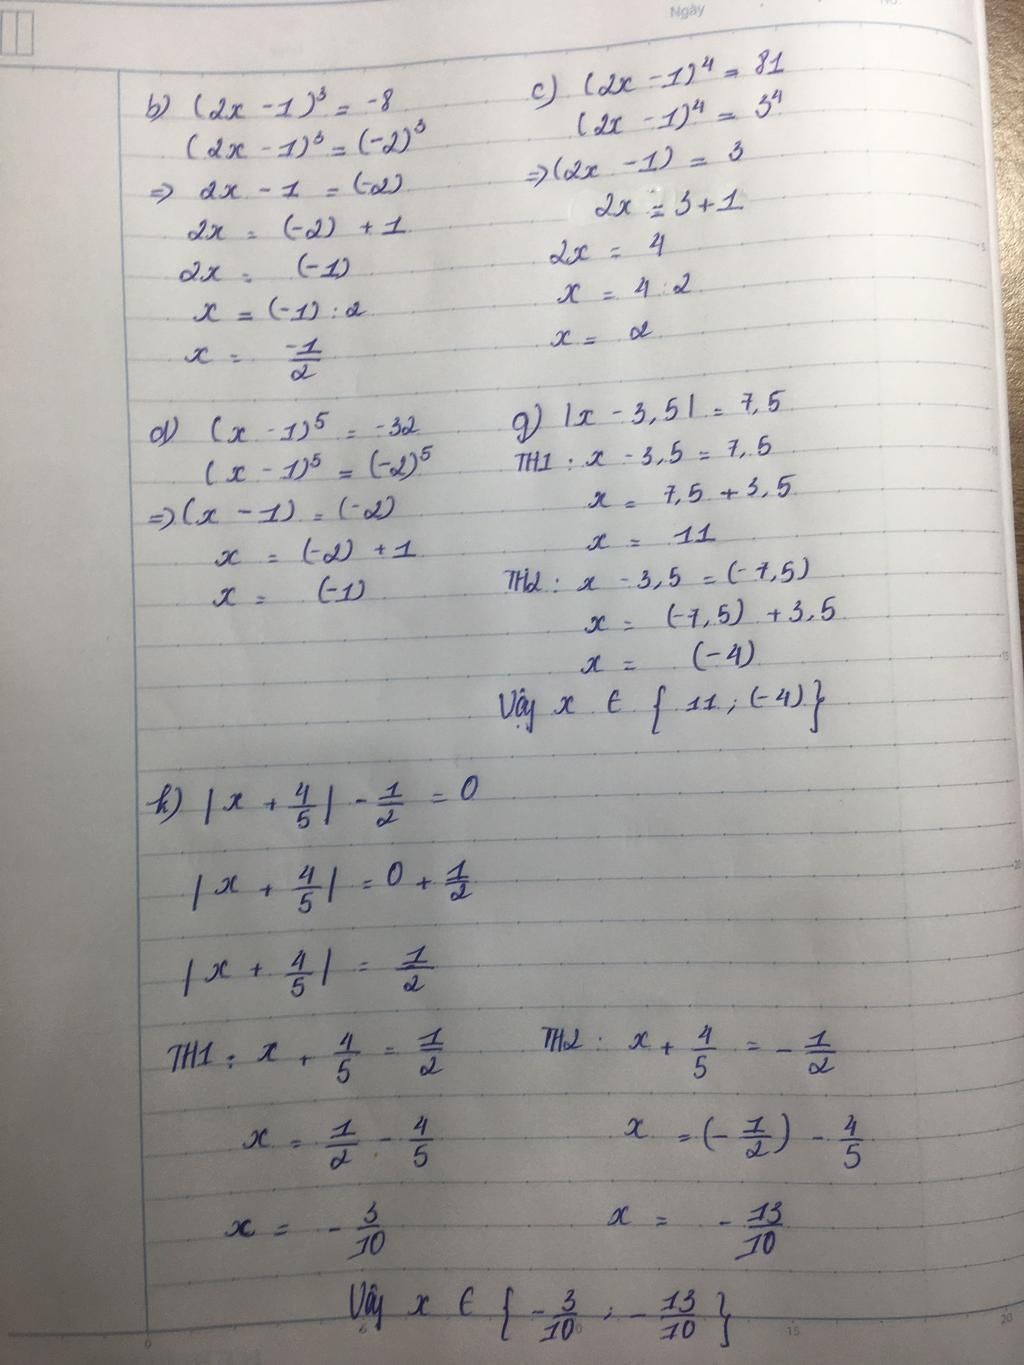 Ngày
No.
b) (2x - 1)³ = -8
(2x - 1)³ = (-2)³
=> 2x - 1 = (-2)
2x = (-2) + 1
2x = (-1)
x = (-1) : 2
x = -1/2
c) (2x - 1)⁴ = 81
(2x - 1)⁴ = 3⁴
=> (2x - 1) = 3
2x = 3 + 1
2x = 4
x = 4 : 2
x = 2
d) (x - 1)⁵ = -32
(x - 1)⁵ = (-2)⁵
=> (x - 1) = (-2)
x = (-2) + 1
x = (-1)
g) |x - 3,5| = 7,5
TH1 : x - 3,5 = 7,5
x = 7,5 + 3,5
x = 11
TH2 : x - 3,5 = (-7,5)
x = (-7,5) + 3,5
x = (-4)
Vậy x ∈ { 11 ; (-4) }
h) |x + 4/5| - 1/2 = 0
|x + 4/5| = 0 + 1/2
|x + 4/5| = 1/2
TH1 : x + 4/5 = 1/2
x = 1/2 - 4/5
x = - 3/10
TH2 : x + 4/5 = - 1/2
x = (- 1/2) - 4/5
x = - 13/10
Vậy x ∈ { - 3/10 ; - 13/10 }
5
10
15
20
0
5
10
15
20